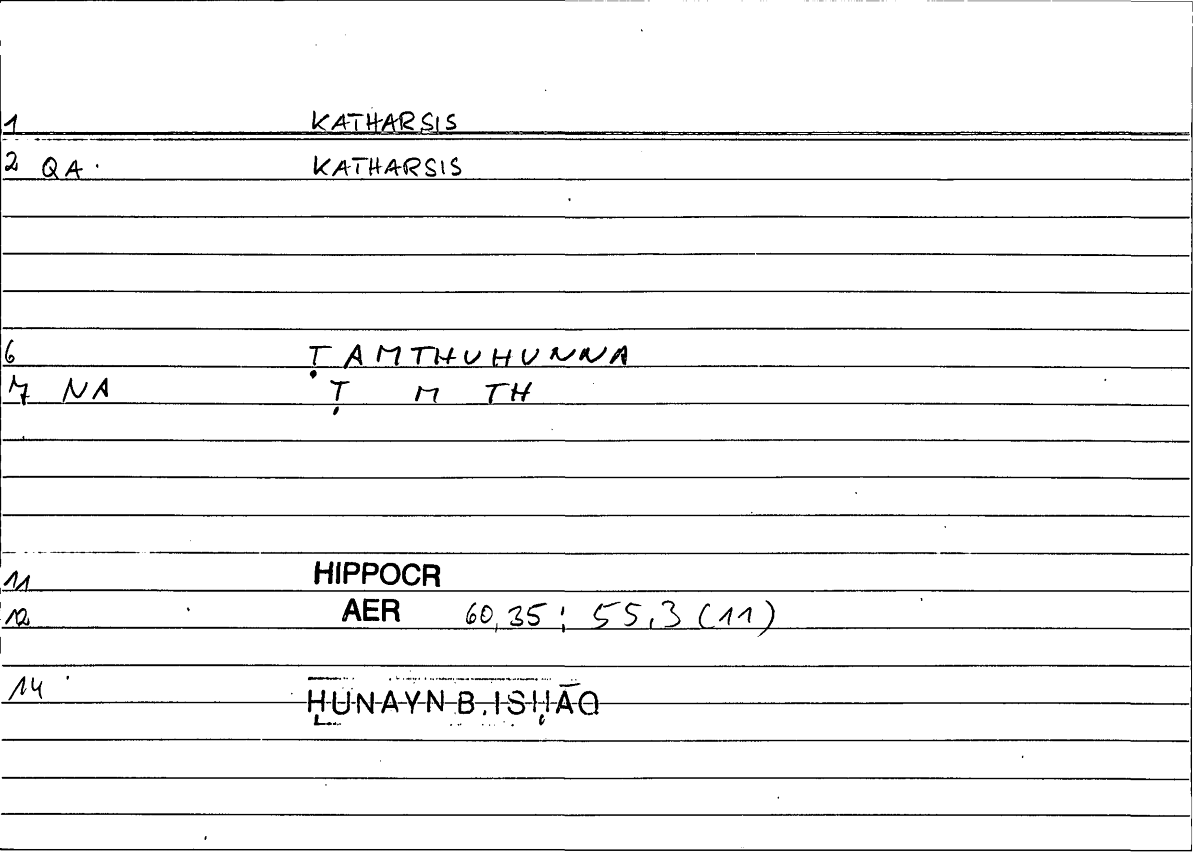 1 KATHARSIS
2 QA. KATHARSIS
6 ṬAMTHUHUNNA
7 NA Ṭ M TH
11 HIPPOCR
12 AER 60,35 ; 55,3 (11)
14 ḤUNAYN B. ISḤĀQ